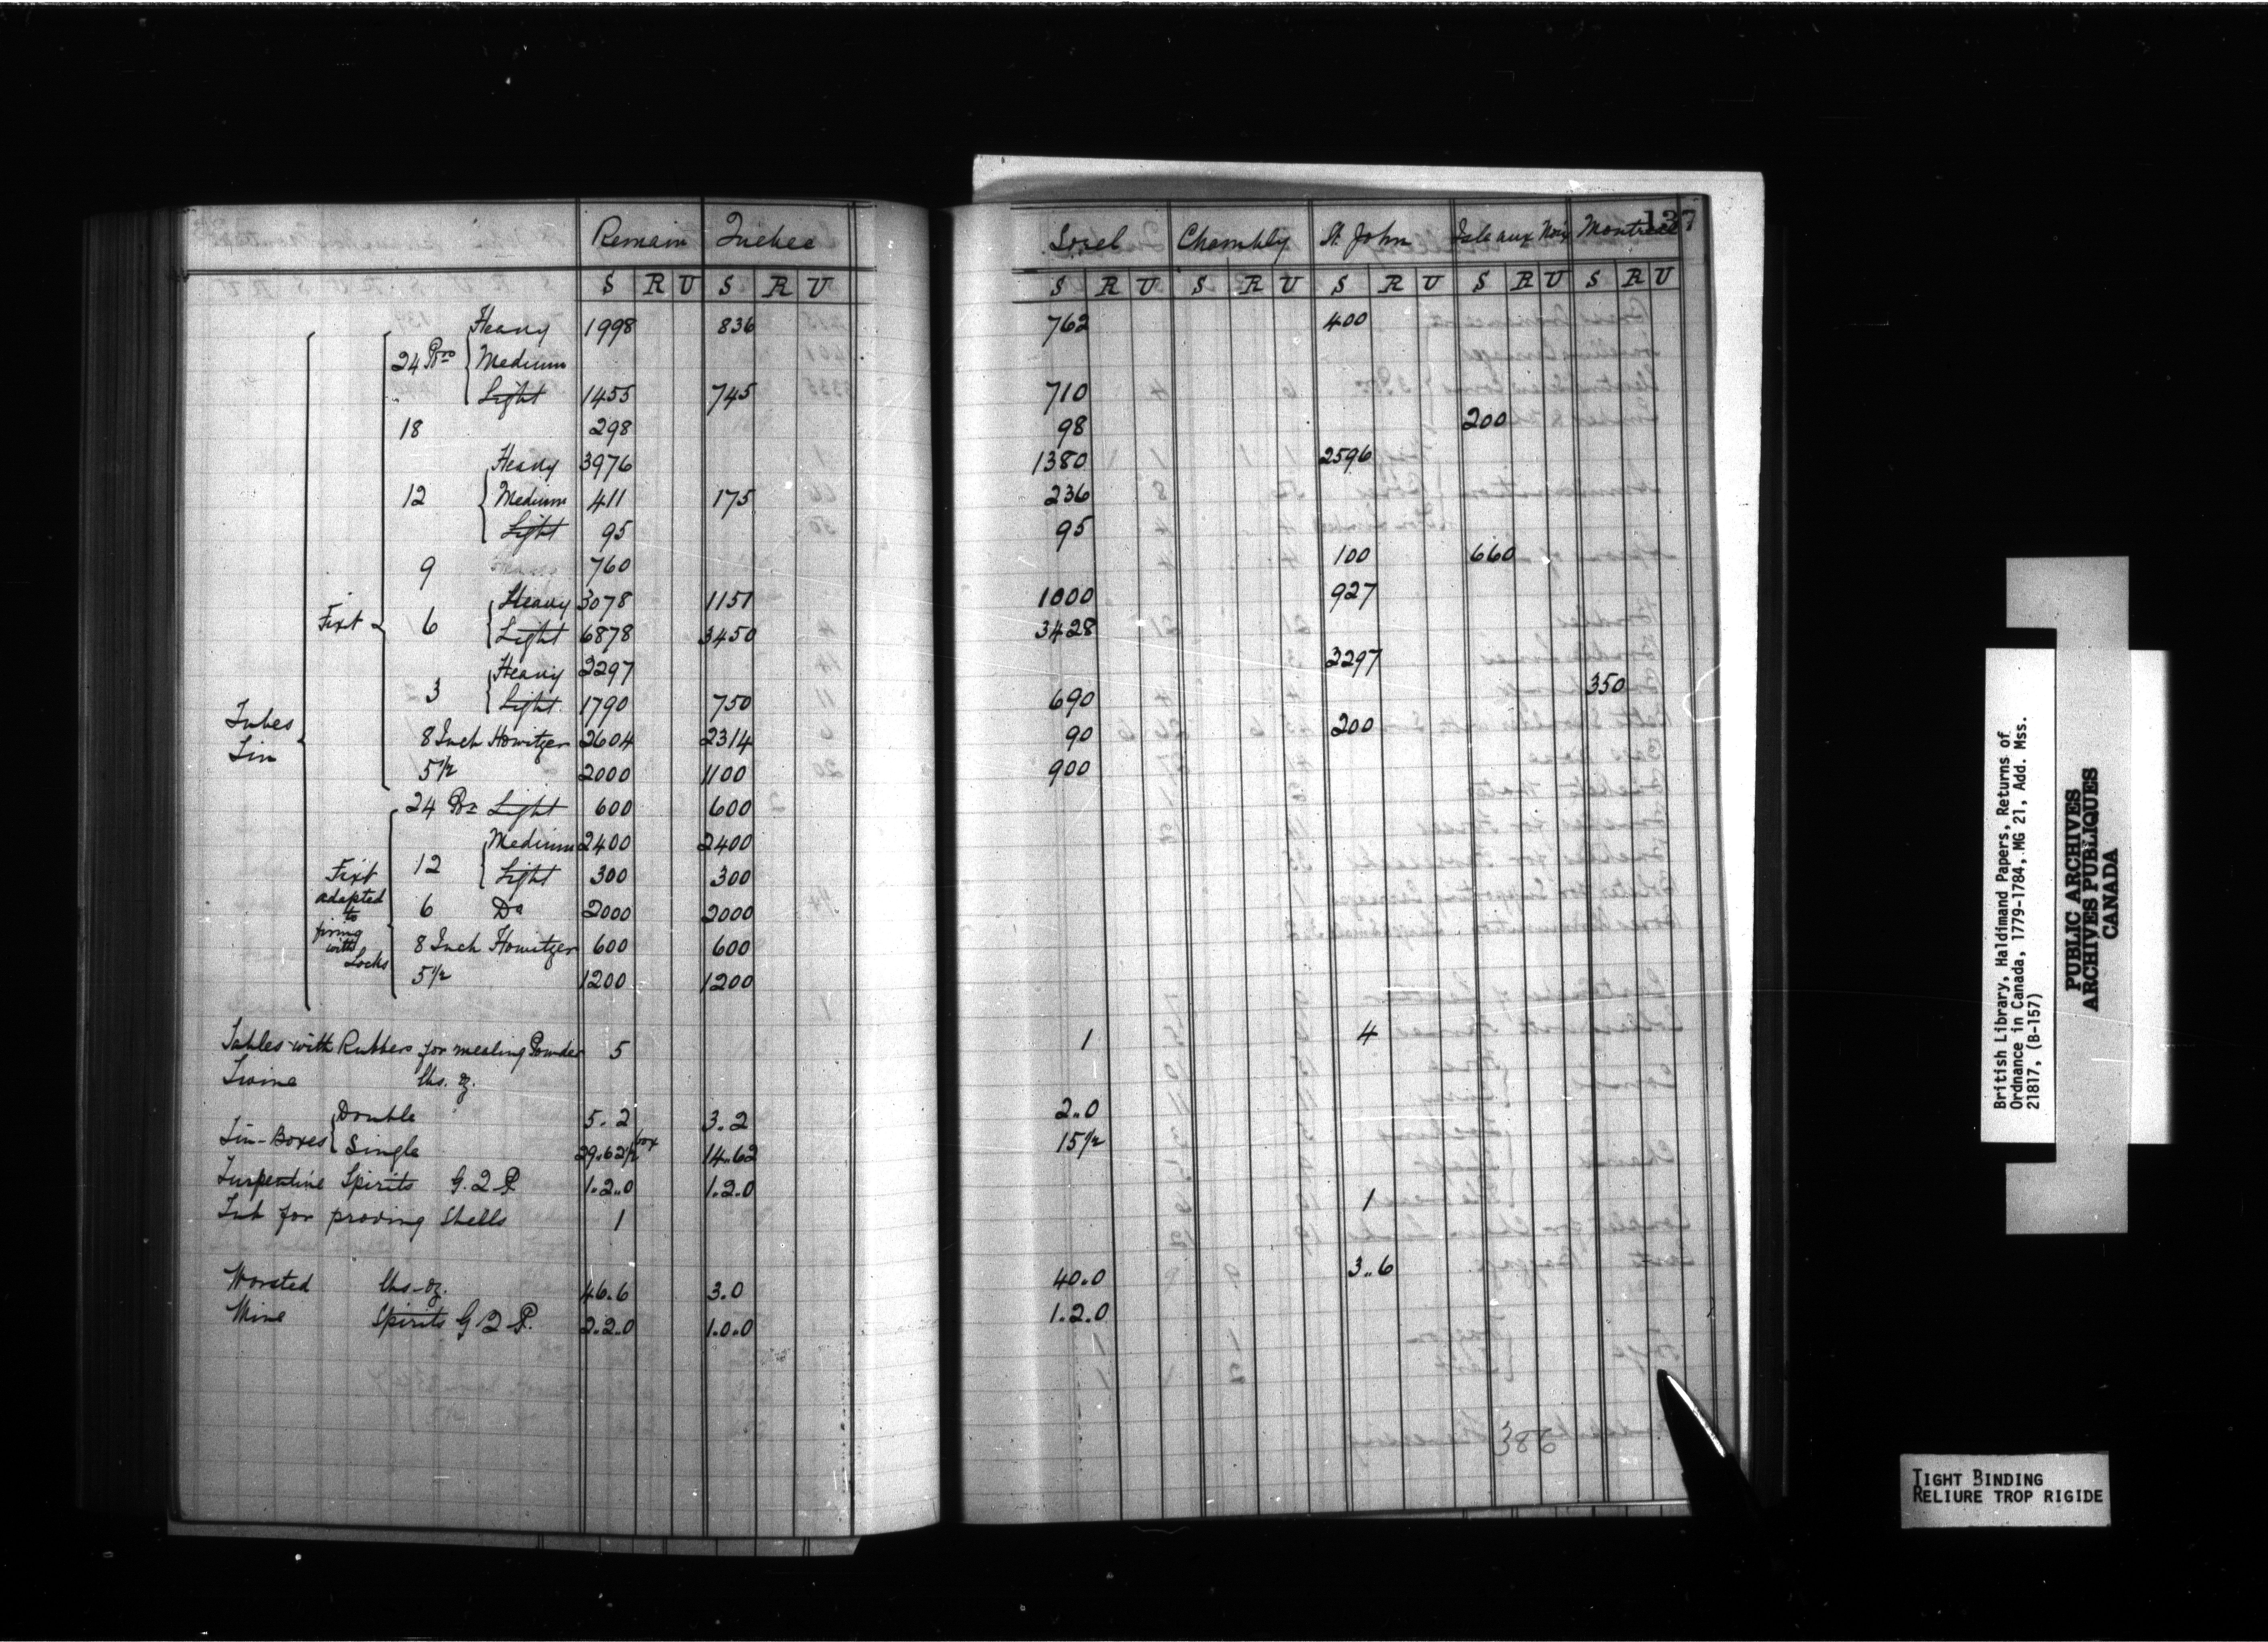 137
Remain Quebec Sorel Chambly St. John Isle aux Noix Montreal
S R U S R U S R U S R U S R U S R U S R U
Tubes Tin
Fixt
24 Prs Heavy 1998 836 762 400
Medium
Light 1455 745 710
18 298 98 200
Heavy 3976 1380 2596
12 Medium 411 175 236
Light 95 95
9 760 100 660
6 Heavy 3078 1151 1000 927
Light 6878 3450 3428
3 Heavy 3297 3297
Light 1790 750 690 350
8 Inch Howitzer 2604 2314 90 200
5 1/2 2000 1100 900
Fixt adapted to firing with Locks
24 Pr Light 600 600
12 Medium 2400 2400
Light 300 300
6 Do 2000 2000
8 Inch Howitzer 600 600
5 1/2 1200 1200
Tables with Rubbers for mealing Powder 5 1 4
Twine lbs. oz.
Tin-Boxes Double 5.2 3.2 2..0
Single 29..62 1/2 box 14..62 15 1/2
Turpentine Spirits G. 2 P. 1.2..0 1.2.0
Tub for proving Shells 1 1
Worsted lbs-oz. 46.6 3.0 40..0 3..6
Wine Spirits G 2 P. 2.2.0 1.0.0 1.2.0
386
British Library, Haldimand Papers, Returns of
Ordnance in Canada, 1779-1784, MG 21, Add. Mss.
21817, (B-157)
PUBLIC ARCHIVES
ARCHIVES PUBLIQUES
CANADA
TIGHT BINDING
RELIURE TROP RIGIDE